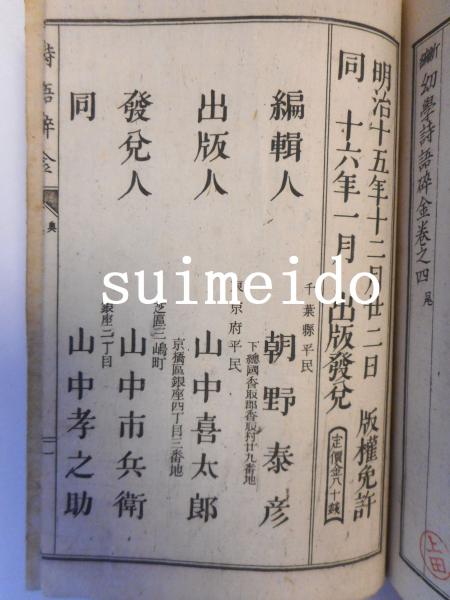 幼學詩語碎金卷之四 尾
上田
明治十五年十二月廿二日 版權免許
同 十六年一月 出版發兌 定價金八十錢
編輯人 千葉縣平民 朝野泰彦
下總國香取郡香取村廿九番地
出版人 東京府平民 山中喜太郎
京橋區銀座四丁目三番地
發兌人 芝區三嶋町 山中市兵衛
同 銀座二丁目 山中孝之助
詩語碎金 奥
suimeido